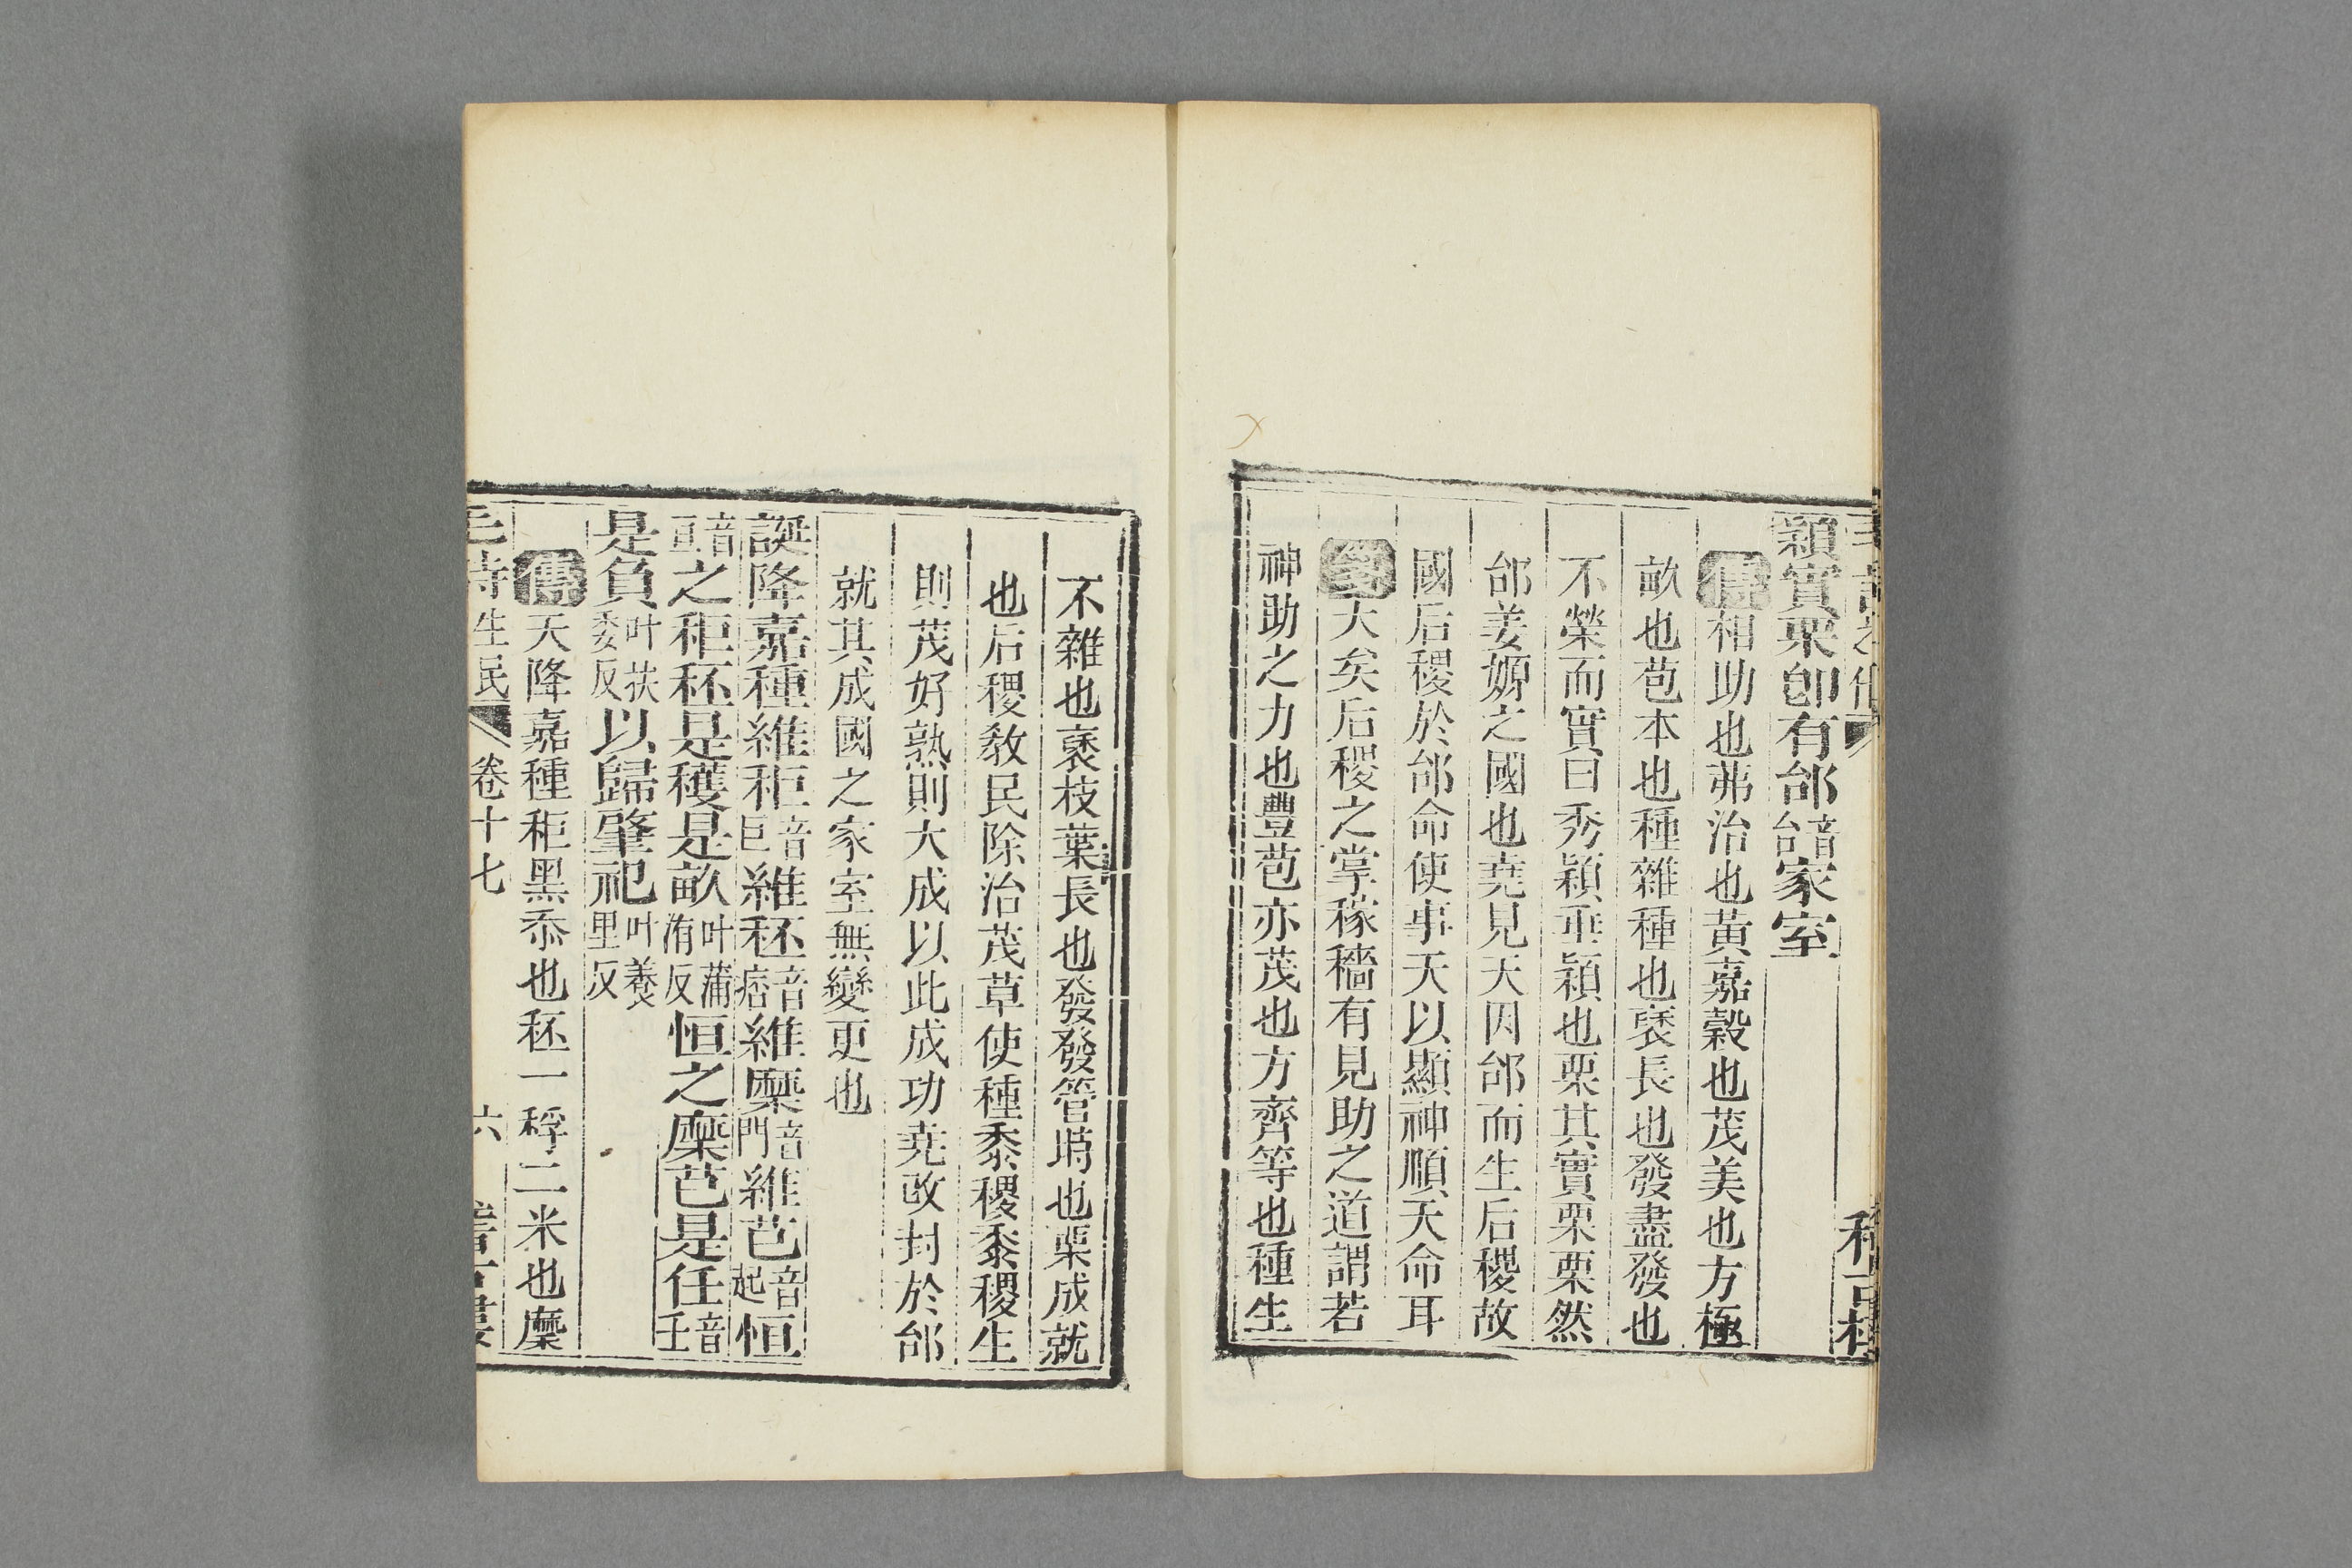 穎實栗卽有邰音台家室
傳相助也茀治也黃嘉穀也茂美也方極
畝也苞本也種雜種也褎長也發盡發也
不榮而實曰秀穎垂穎也栗其實栗栗然
邰姜嫄之國也堯見天因邰而生后稷故
國后稷於邰命使事天以顯神順天命耳
箋大矣后稷之掌稼穡有見助之道謂若
神助之力也豐苞亦茂也方齊等也種生
不雜也褎枝葉長也發發管時也栗成就
也后稷敎民除治茂草使種黍稷黍稷生
則茂好熟則大成以此成功堯改封於邰
就其成國之家室無變更也
誕降嘉種維秬音巨維秠音痞維穈音門維芑音起恒
音亘之秬秠是穫是畝叶蒲洧反恒之穈芑是任音壬
是負叶扶委反以歸肇祀叶養里反
傳天降嘉種秬黑黍也秠一稃二米也穈
毛詩生民 卷十七 六